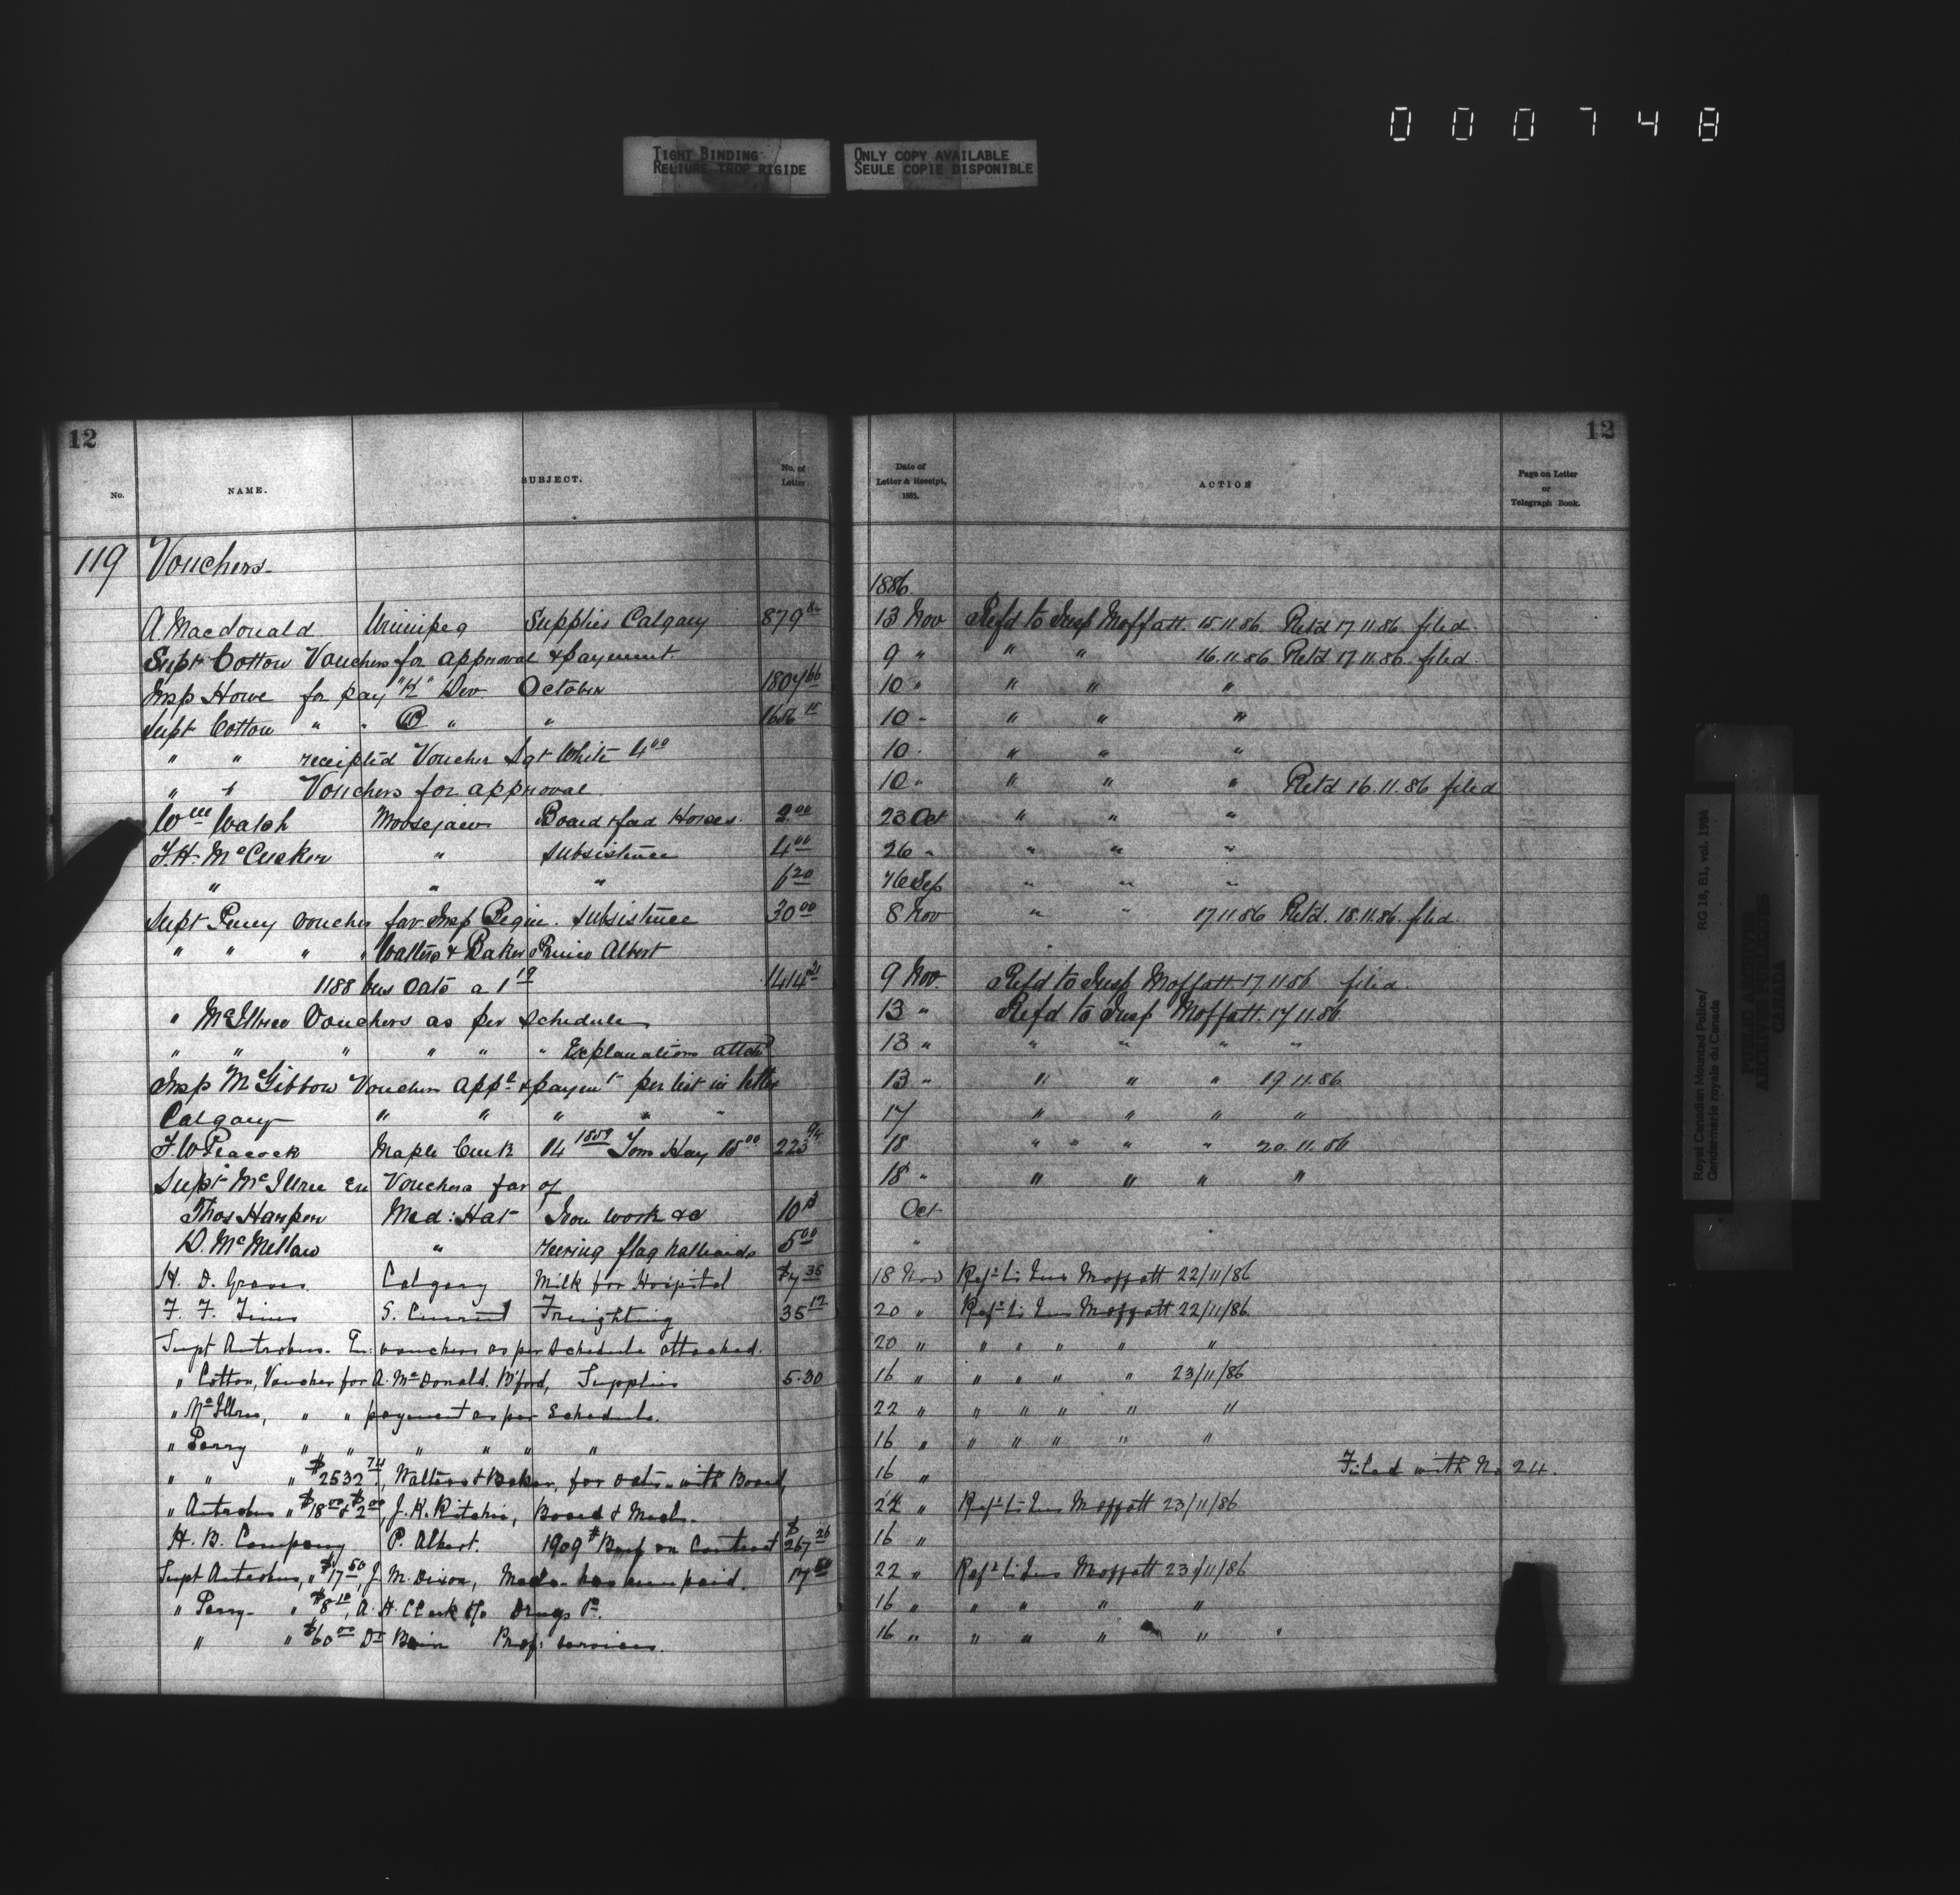 000748
TIGHT BINDING
RELIURE TROP RIGIDE
ONLY COPY AVAILABLE
SEULE COPIE DISPONIBLE
12
12
No. NAME. SUBJECT. No. of Letter Date of Letter & Receipt, 1885. ACTION Page on Letter or Telegraph Book.
119 Vouchers
1886
A Macdonald Winnipeg Supplies Calgary 879 84 13 Nov Refd to Insp Moffatt. 15.11.86. Retd 17 11.86. filed
Supt Cotton Vouchers for approval & payment 9 " " " 16.11.86 Retd 17 11.86. filed
Insp Howe for pay "K" Div October 1804 66 10 " " " "
Supt Cotton " " " " 1656 15 10 " " " "
" " receipted Voucher Sgt White 4 00 10 " " "
" " Vouchers for approval 10 " " " " Retd 16.11.86 filed
Wm Watch Moosejaw Board & feed Horses 2 00 23 Oct " " "
J.H. McCusker " Subsistence 4 00 26 " " " "
" " " 6 20 Sep " " "
Supt Perry voucher for Insp Begin. Subsistence 30 00 8 Nov " " 17.11.86 Retd. 18.11.86. filed
" " " " Walters & Baker Prince Albert
1188 bus Oats a 1 19 1414 21 9 Nov. Refd to Insp Moffatt. 17.11.86 filed.
" McIllree Vouchers as per Schedule 13 " Refd to Insp Moffatt. 17 11.86.
" " " " " " Explanations attchd 13 " " " " "
Insp McGibbon Vouchers appl & paymt per list in letter 13 " " " " 19 11.86.
Calgary " " " " " 17 " " " "
F. W Peacock Maple Creek 14 1859 Tons Hay 15 00 223 94 18 " " " " 20.11.86
Supt McIllree En Vouchers for of 18 " " " " "
Thos Harper Med: Hat Iron work &c 10 Oct
D. McMellan " reeving flag halliards 5 00 "
H. D. Graves Calgary Milk for Hospital $7 35 18 Nov Refd to Ins Moffatt 22/11/86
F. F. Tims S. Current Freighting 35 12 20 " Refd to Ins Moffatt 22/11/86.
Supt Antrobus. En: vouchers as per Schedule attached. 20 " " " " " "
" Cotton, Voucher for A. McDonald. B'ford, Supplies 5.30 16 " " " " " 23/11/86
" McIllree, " " payment as per Schedule. 22 " " " " " "
" Perry " " " " " " 16 " " " " " "
" " " $2532 74, Walters & Baker, for oats with Board, 16 " Filed with No 24.
" Antrobus " $18 00 & $2 00, J. K. Ritchie, Board & Meals. 22 " Refd to Ins Moffatt 23/11/86
H. B. Company P. Albert. 1909 # Beef on Contract $267 26 16 "
Supt Antrobus, " $17 50, J. M. Dixon, Meds. has been paid. 17 50 22 " Refd to Ins Moffatt 23/11/86
" Perry " $8 10, A. H. Clark Drugs 16 " " " " "
" " $60 00 Dr Bain Prof: services. 16 " " " " "
Royal Canadian Mounted Police/ RG 18, B1, vol. 1984
Gendarmerie royale du Canada
PUBLIC ARCHIVES
ARCHIVES PUBLIQUES
CANADA